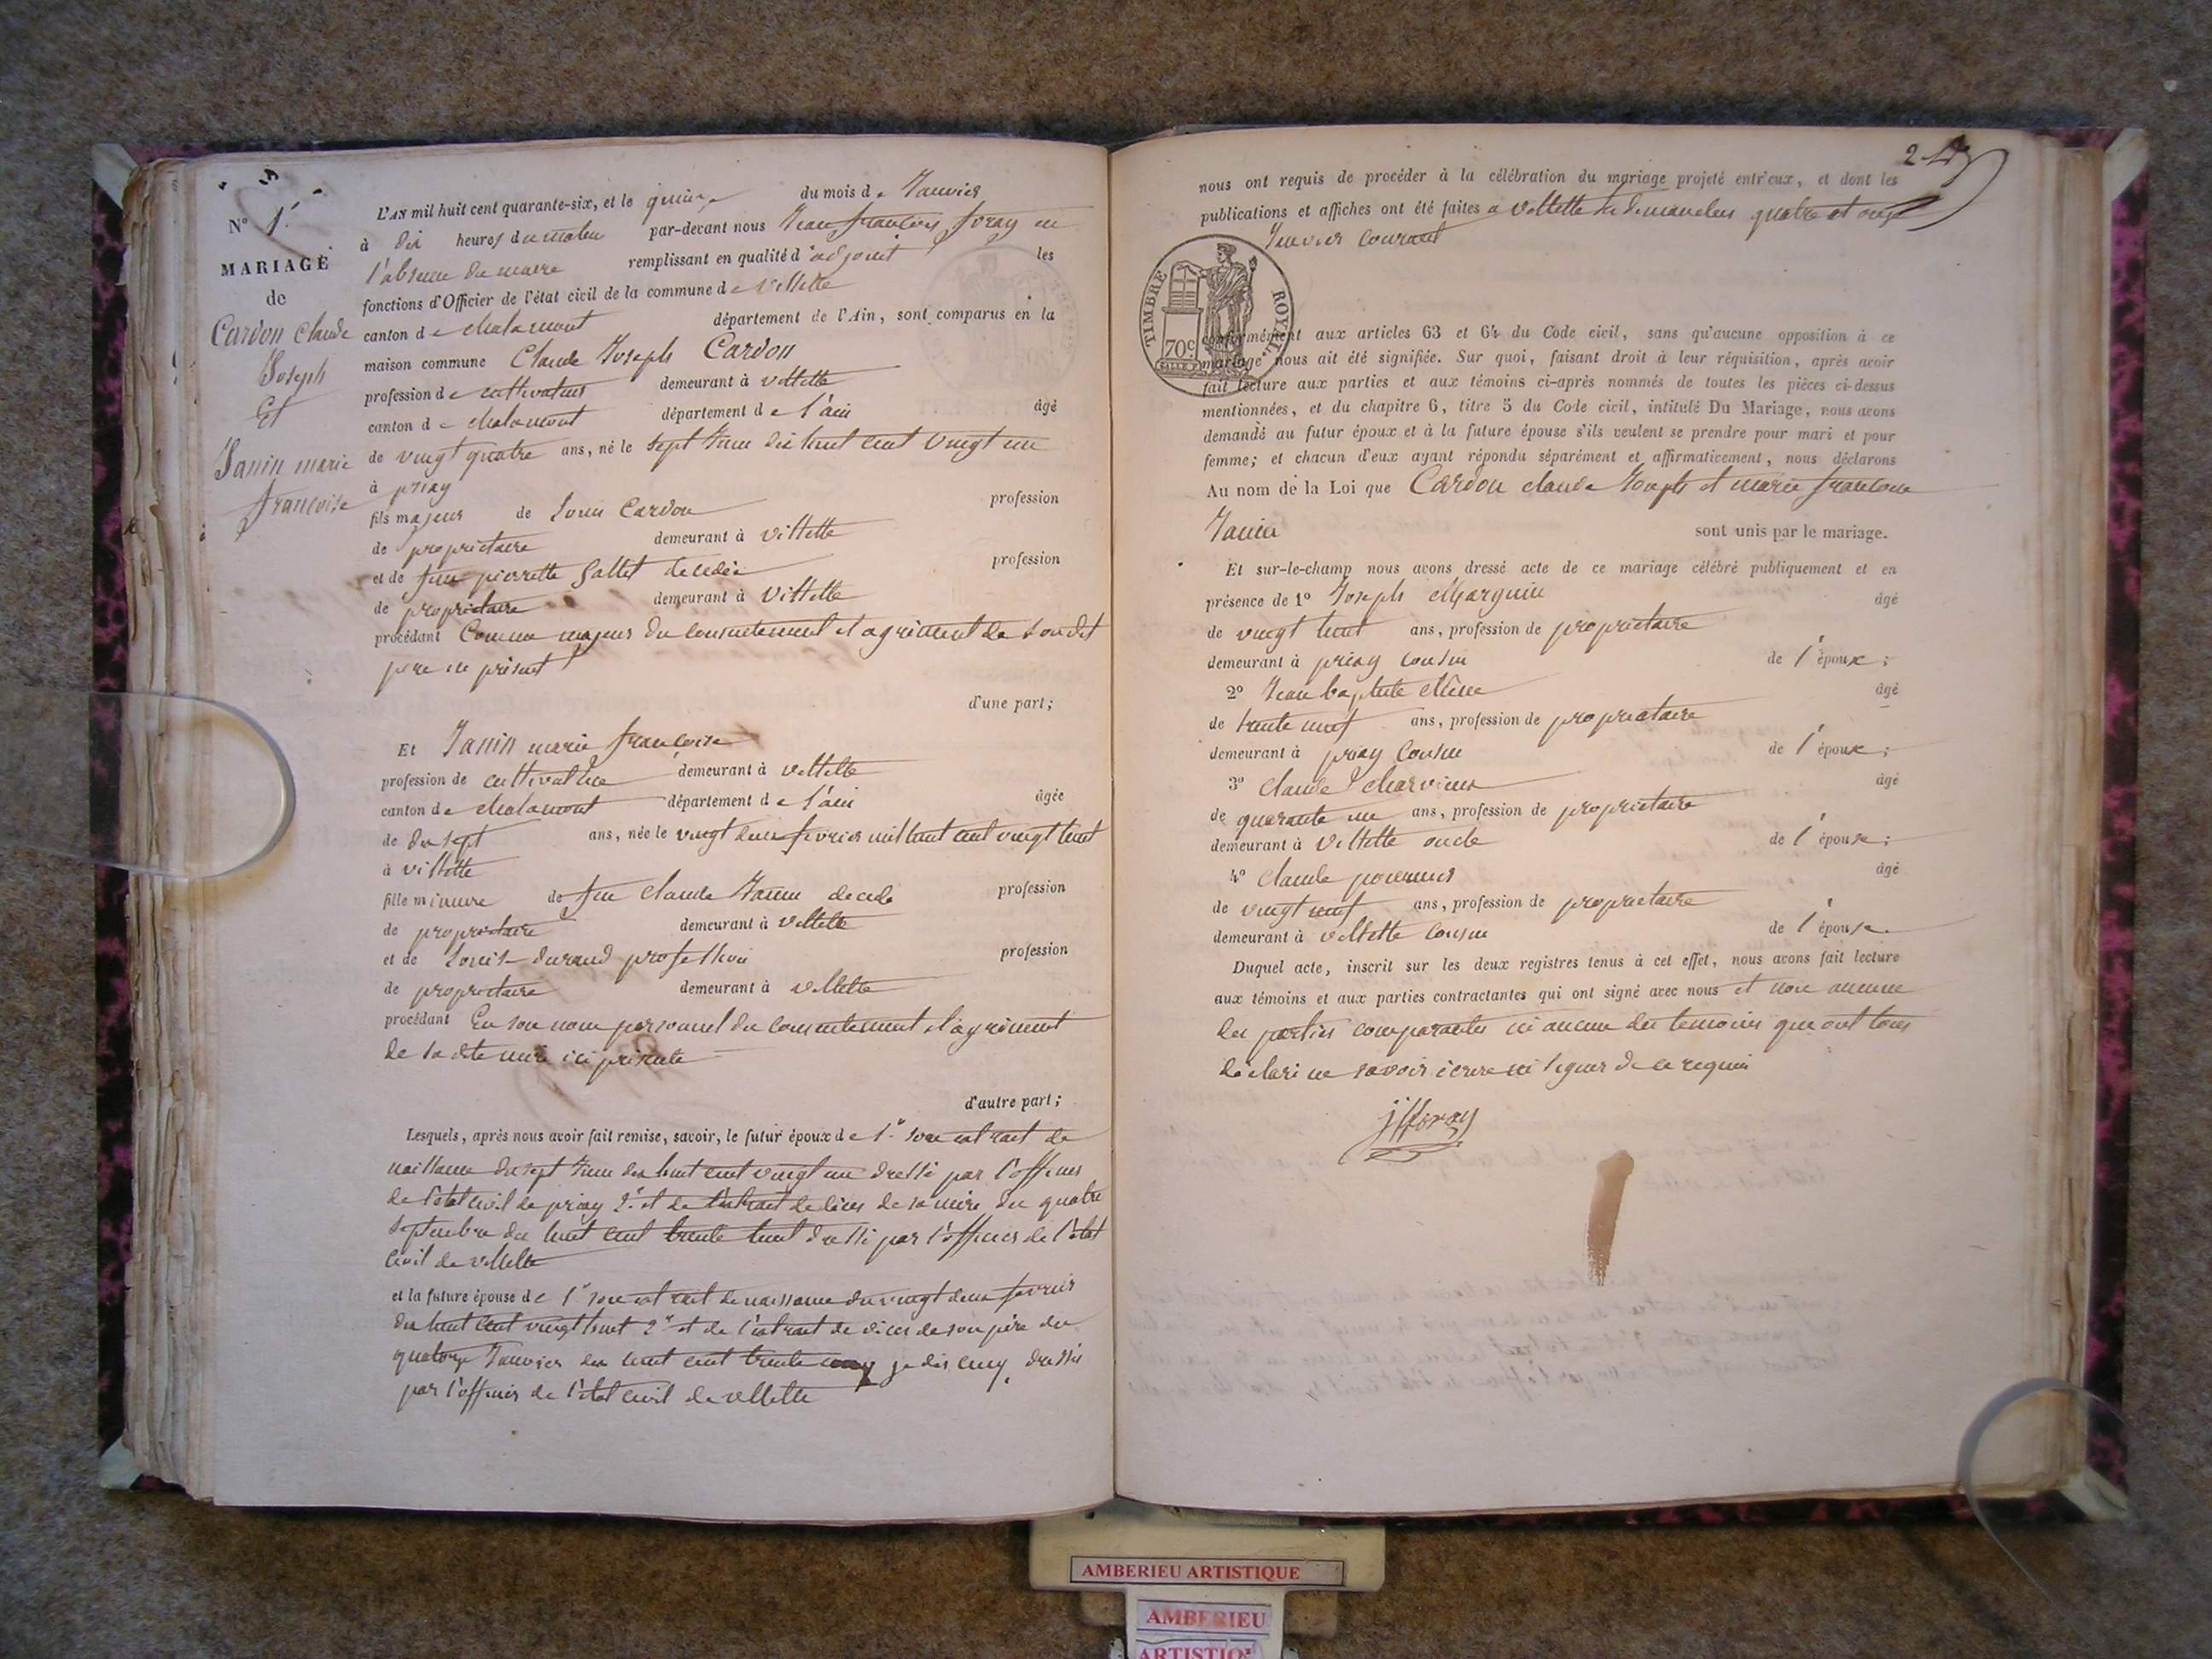 N° 1er
MARIAGE
de
Cardon Claude
Joseph
Et
Janin marie
francoise
L'AN mil huit cent quarante-six, et le quinze du mois de Janvier
à dix heures du matin par-devant nous Jean francois foray en
l'absence du maire remplissant en qualité d'adjoint les
fonctions d'Officier de l'état civil de la commune de villette
canton de chalamont département de l'Ain, sont comparus en la
maison commune Claude Joseph Cardon
profession de cultivateur demeurant à villette
canton de chalamont département de l'ain âgé
de vingt quatre ans, né le sept Juin dix huit cent vingt un
à priay
fils majeur de Louis Cardon profession
de propriétaire demeurant à villette
et de feue pierrette Gallet decedée profession
de propriétaire demeurant à villette
procédant Comme majeur du consentement et agrément de son dit
père ici présent
d'une part;
Et Janin marie francoise
profession de cultivatrice demeurant à villette
canton de chalamont département de l'ain âgée
de dix sept ans, née le vingt deux fevrier mil huit cent vingt huit
à villette
fille mineure de feu Claude Janin decedé profession
de propriétaire demeurant à villette
et de Louise durand profession profession
de propriétaire demeurant à villette
procédant En son nom personnel du consentement et agrément
de sa dite mère ici présente
d'autre part;
Lesquels, après nous avoir fait remise, savoir, le futur époux de 1° son extrait de
naissance du sept Juin dix huit cent vingt un dressé par l'officier
de l'état civil de priay 2° et de l'extrait de déces de sa mère du quatre
septembre dix huit cent trente huit dressé par l'officier de l'état
civil de villette
et la future épouse de 1° son extrait de naissance du vingt deux fevrier
dix huit cent vingt huit 2° et de l'extrait de déces de son père du
quatorze Janvier dix huit cent trente cinq je dis cinq, dressé
par l'officier de l'état civil de villette
nous ont requis de procéder à la célébration du mariage projeté entr'eux, et dont les
publications et affiches ont été faites a villette les dimanches quatre et onze
Janvier courant
TIMBRE ROYAL
70c
conformément aux articles 63 et 64 du Code civil, sans qu'aucune opposition à ce
mariage nous ait été signifiée. Sur quoi, faisant droit à leur réquisition, après avoir
fait lecture aux parties et aux témoins ci-après nommés de toutes les pièces ci-dessus
mentionnées, et du chapitre 6, titre 5 du Code civil, intitulé Du Mariage, nous avons
demandé au futur époux et à la future épouse s'ils veulent se prendre pour mari et pour
femme; et chacun d'eux ayant répondu séparément et affirmativement, nous déclarons
Au nom de la Loi que Cardon claude Joseph et marie francoise
Janin sont unis par le mariage.
Et sur-le-champ nous avons dressé acte de ce mariage célébré publiquement et en
présence de 1° Joseph Marguin âgé
de vingt huit ans, profession de propriétaire
demeurant à priay cousin de l'époux;
2° Jean baptiste âgé
de trente neuf ans, profession de propriétaire
demeurant à priay Cousin de l'époux;
3° Claude Charvieux âgé
de quarante un ans, profession de propriétaire
demeurant à villette oncle de l'épouse;
4° Claude âgé
de vingt neuf ans, profession de propriétaire
demeurant à villette cousin de l'épouse.
Duquel acte, inscrit sur les deux registres tenus à cet effet, nous avons fait lecture
aux témoins et aux parties contractantes qui ont signé avec nous et non aucune
des parties comparantes ni aucun des temoins qui ont tous
déclaré ne savoir écrire ni signer de ce requis
jfforay
AMBERIEU ARTISTIQUE
AMBERIEU
ARTISTIQ